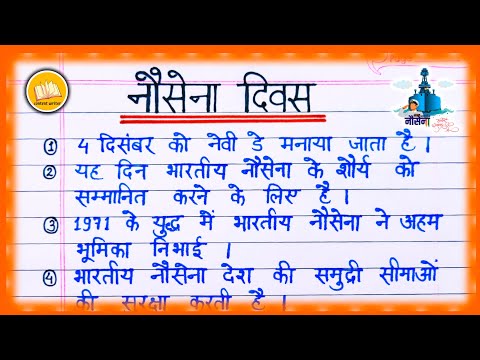 content writer
नौसेना दिवस
नौसेना
① 4 दिसंबर को नेवी डे मनाया जाता है ।
② यह दिन भारतीय नौसेना के शौर्य को
सम्मानित करने के लिए है ।
③ 1971 के युद्ध में भारतीय नौसेना ने अहम
भूमिका निभाई ।
④ भारतीय नौसेना देश की समुद्री सीमाओं
की सुरक्षा करती है ।